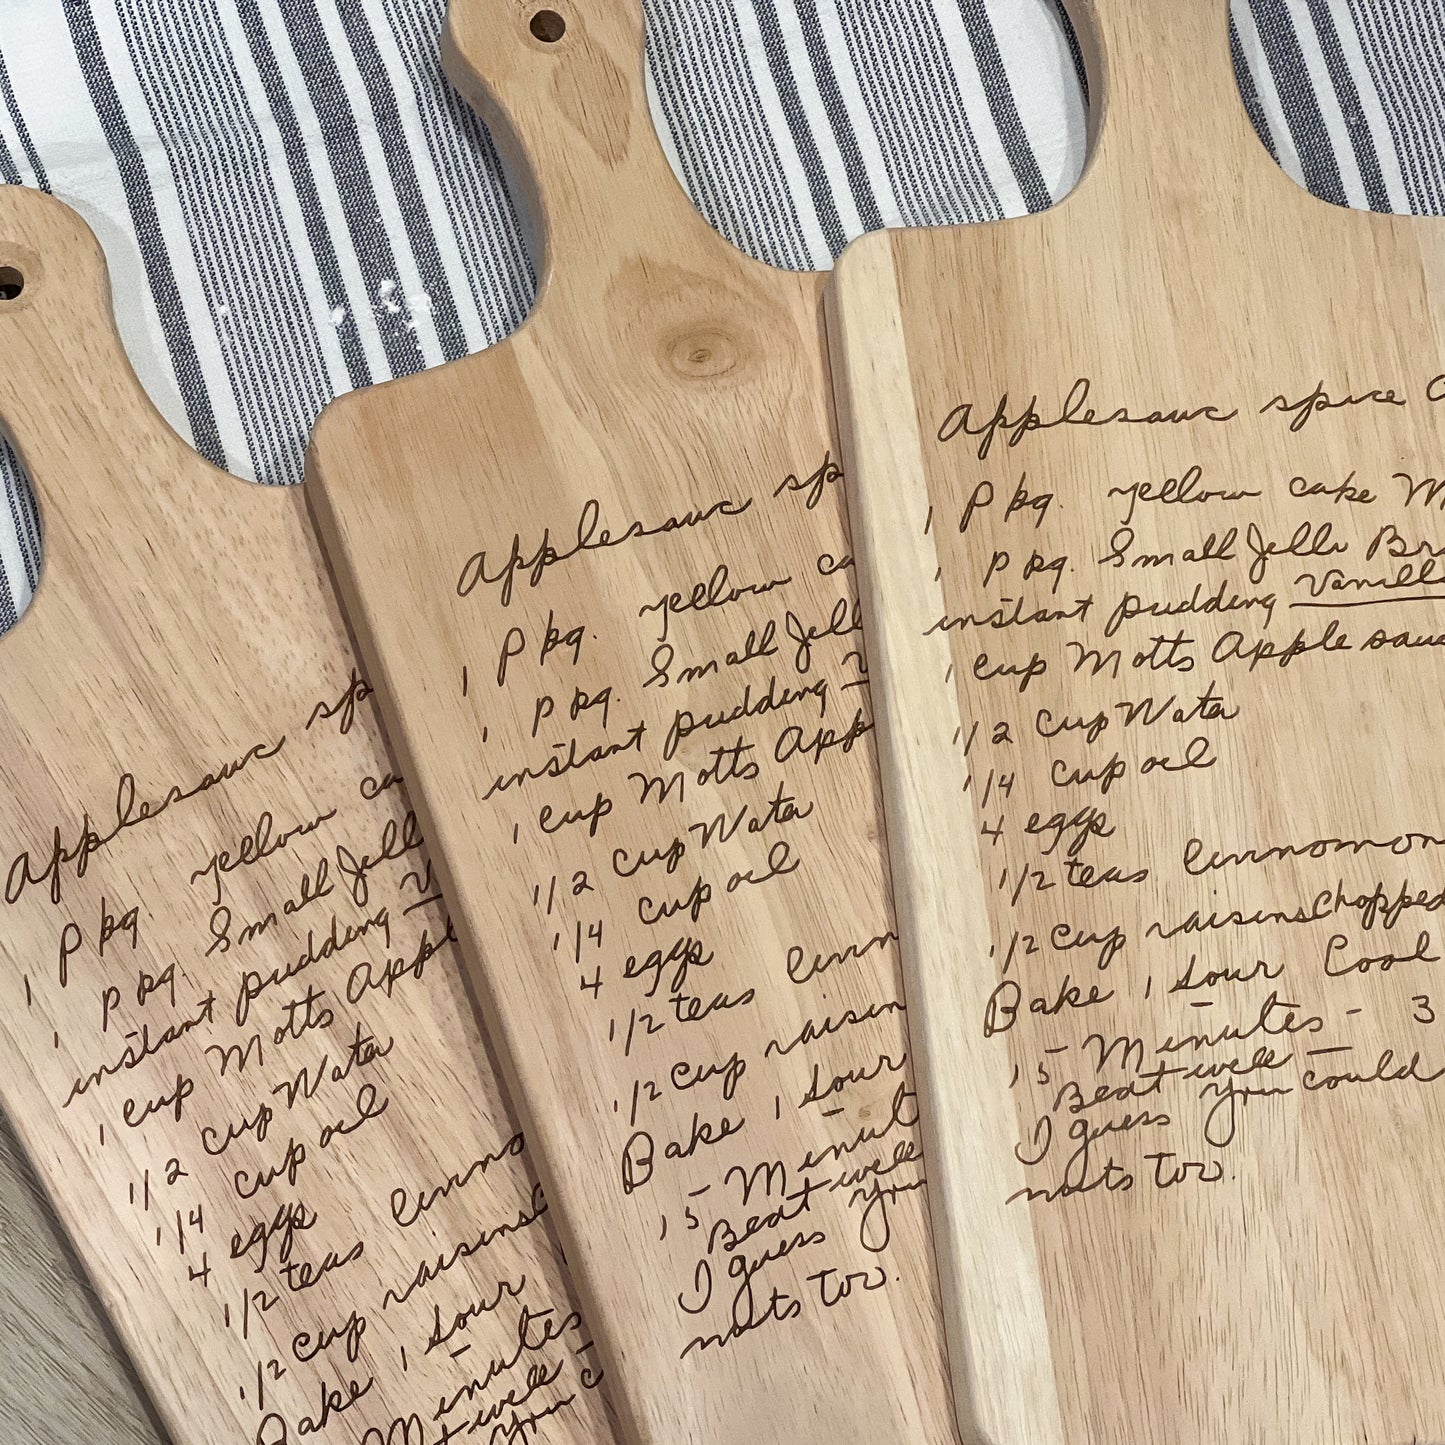 Applesauce sp
1 P kg. yellow ca
1 P kg. Small Jell
instant pudding V
1 cup Motts Appl
1/2 cup Water
1/4 cup oil
4 eggs
1/2 teas cinno
1/2 cup raisins
Bake 1 hour
Minutes
well
You c
Applesauce sp
1 P kg. yellow ca
1 P kg. Small Jell
instant pudding V
1 cup Motts App
1/2 cup Water
1/4 cup oil
4 eggs
1/2 teas cinn
1/2 cup raisin
Bake 1 hour
15 - Minut
Beat well
I guess You
nuts too.
Applesauce spice
1 P kg. yellow cake M
1 P kg. Small Jello Bra
instant pudding Vanilla
1 cup Motts Apple sauc
1/2 cup Water
1/4 cup oil
4 eggs
1/2 teas cinnomon
1/2 cup raisins Chopped
Bake 1 hour Cool
15 - Minutes - 3
Beat well -
I guess You could
nuts too.